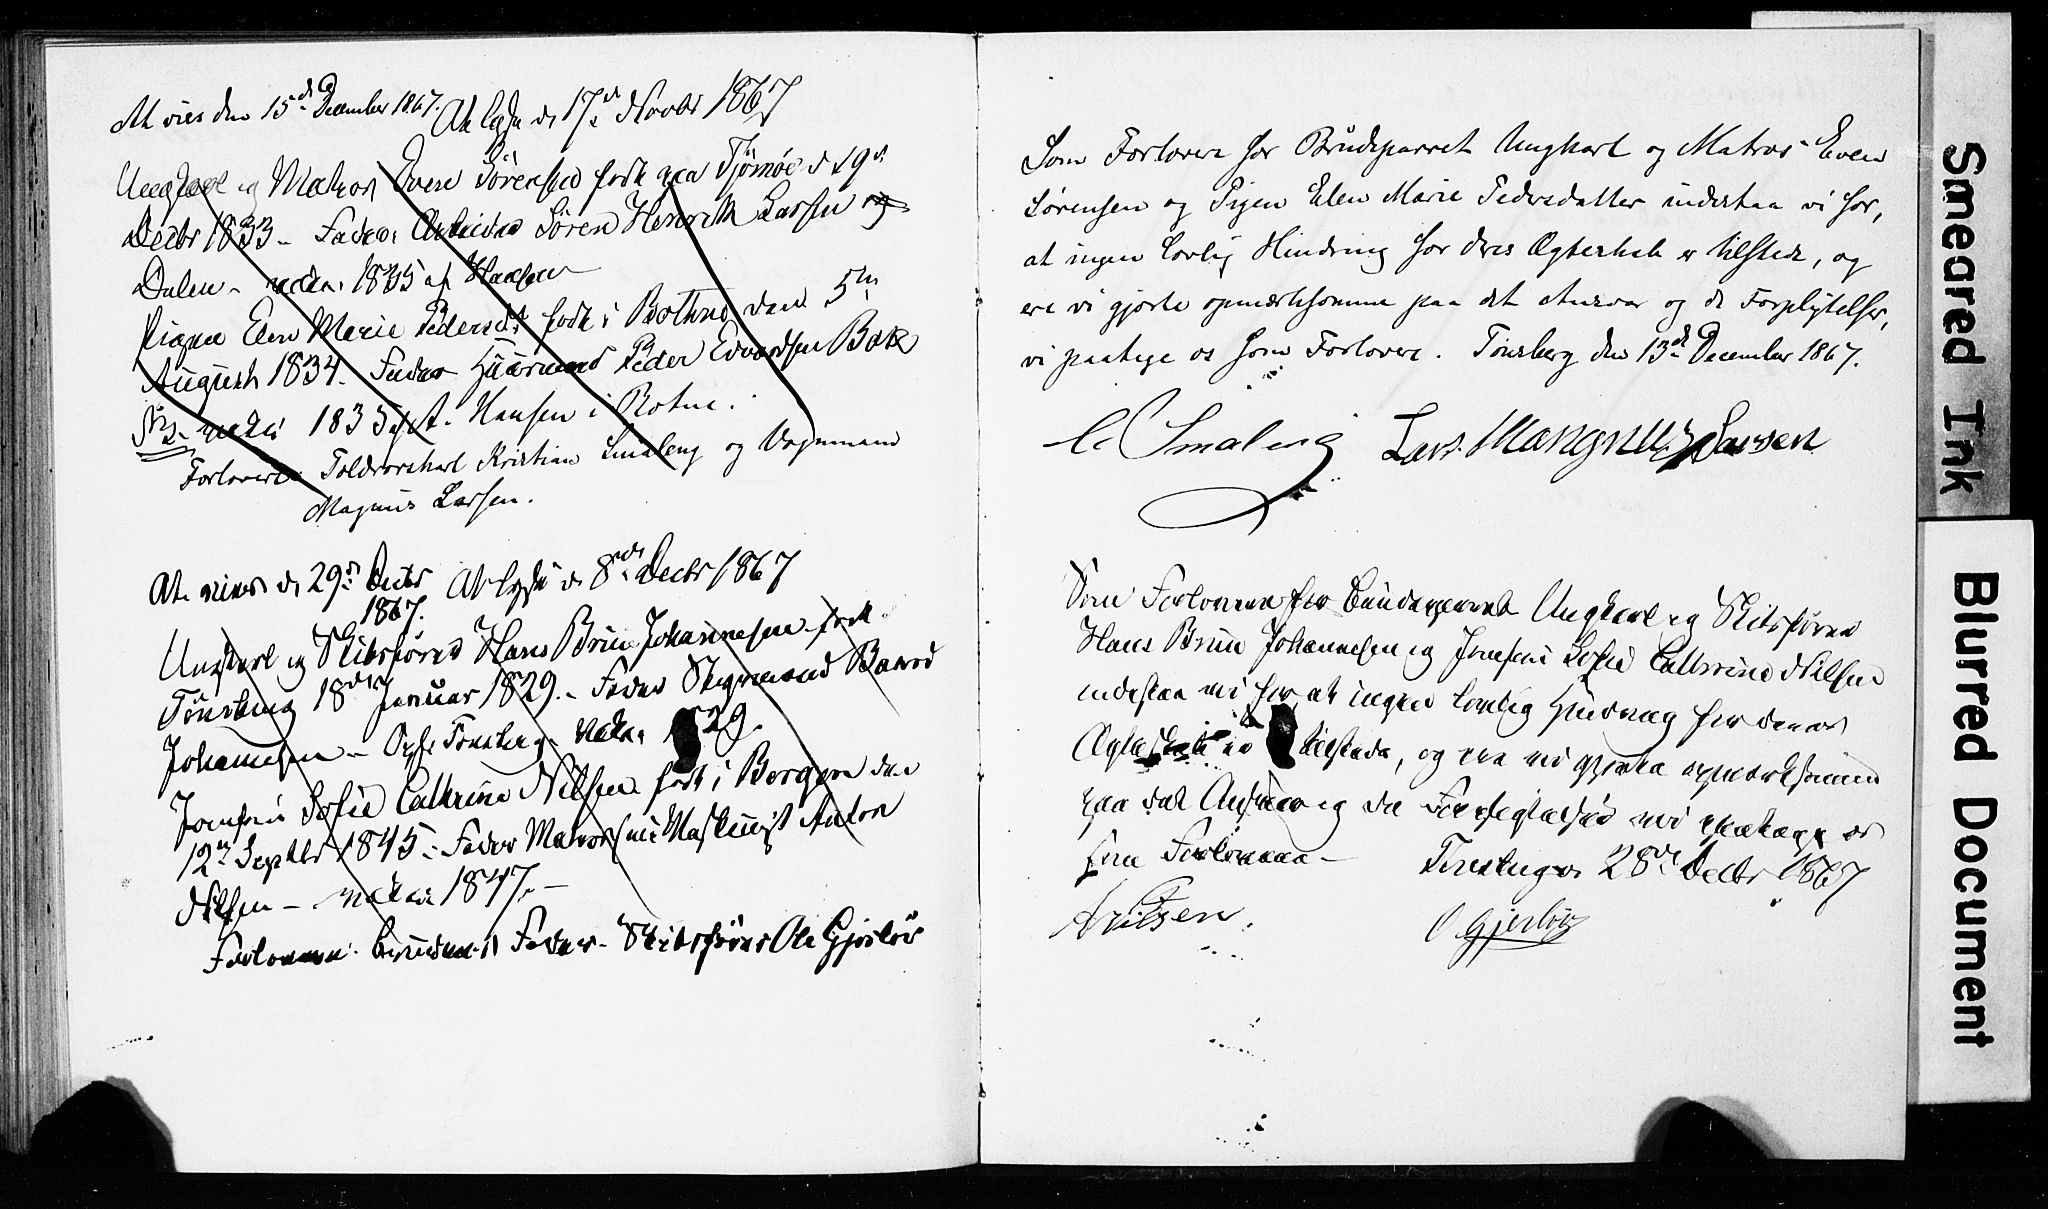 At vies den 15de December 1867. At lyse d. 17de Novbr 1867
Ungkarl og Matros Even Sörensen født paa Tjömöe d 29de
Decbr 1833 - Fader Arbeider Sören Henrik Larsen
Dalen - vakc. 1835 af Hansen
Pigen Elen Marie Pedersdt. født i Bothne den 5te
August 1834. Fader Huusmand Peder Edvardsen Bakke
vakc. 1835 Hansen i Botne.
Forlovere: Toldrorskarl Kristian Smaleng og Vognmand
Magnus Larsen.
At vies d. 29de Decbr At lyse d. 8de Decbr 1867
1867.
Ungkarl og Skibsförer Hans Brun Johannesen født
Tönsberg 18de Januar 1829. - Fader Styrmand Bernt
Johannesen - Tönsberg. vakc. 1829.
Jomfru Sofie Cathrine Nilsen født i Bergen den
12te Septbr 1845. Fader Maskinist Anton
Nilsen - vakc. 1847. -
Forlovere. Brudens Fader - Skibsförer Ole Gjerlöv
Som Forlovere for Brudeparret Ungkarl og Matros Even
Sørensen og Pigen Elen Marie Pedersdatter indestaa vi for,
at ingen lovlig Hindring for deres Ægteskab er tilstede, og
ere vi gjorte opmærksomme paa det Ansvar og de Forpligtelser,
vi paatage os som Forlovere. Tønsberg den 13de December 1867.
C Smaleng Lars Mangnus Larsen
Som Forlovere for Brudeparret Ungkarl og Skibsförer
Hans Brun Johannesen og Jomfru Sofie Cathrine Nilsen
indestaa vi for, at ingen lovlig Hindring for deres
Ægteskab er tilstede, og ere vi gjorte opmærksomme
paa det Ansvar og de Forpligtelser vi paatage os
som Forlovere - Tönsberg d. 28de Decbr 1867
A Nilsen. O Gjerlöv
Smeared Ink
Blurred Document